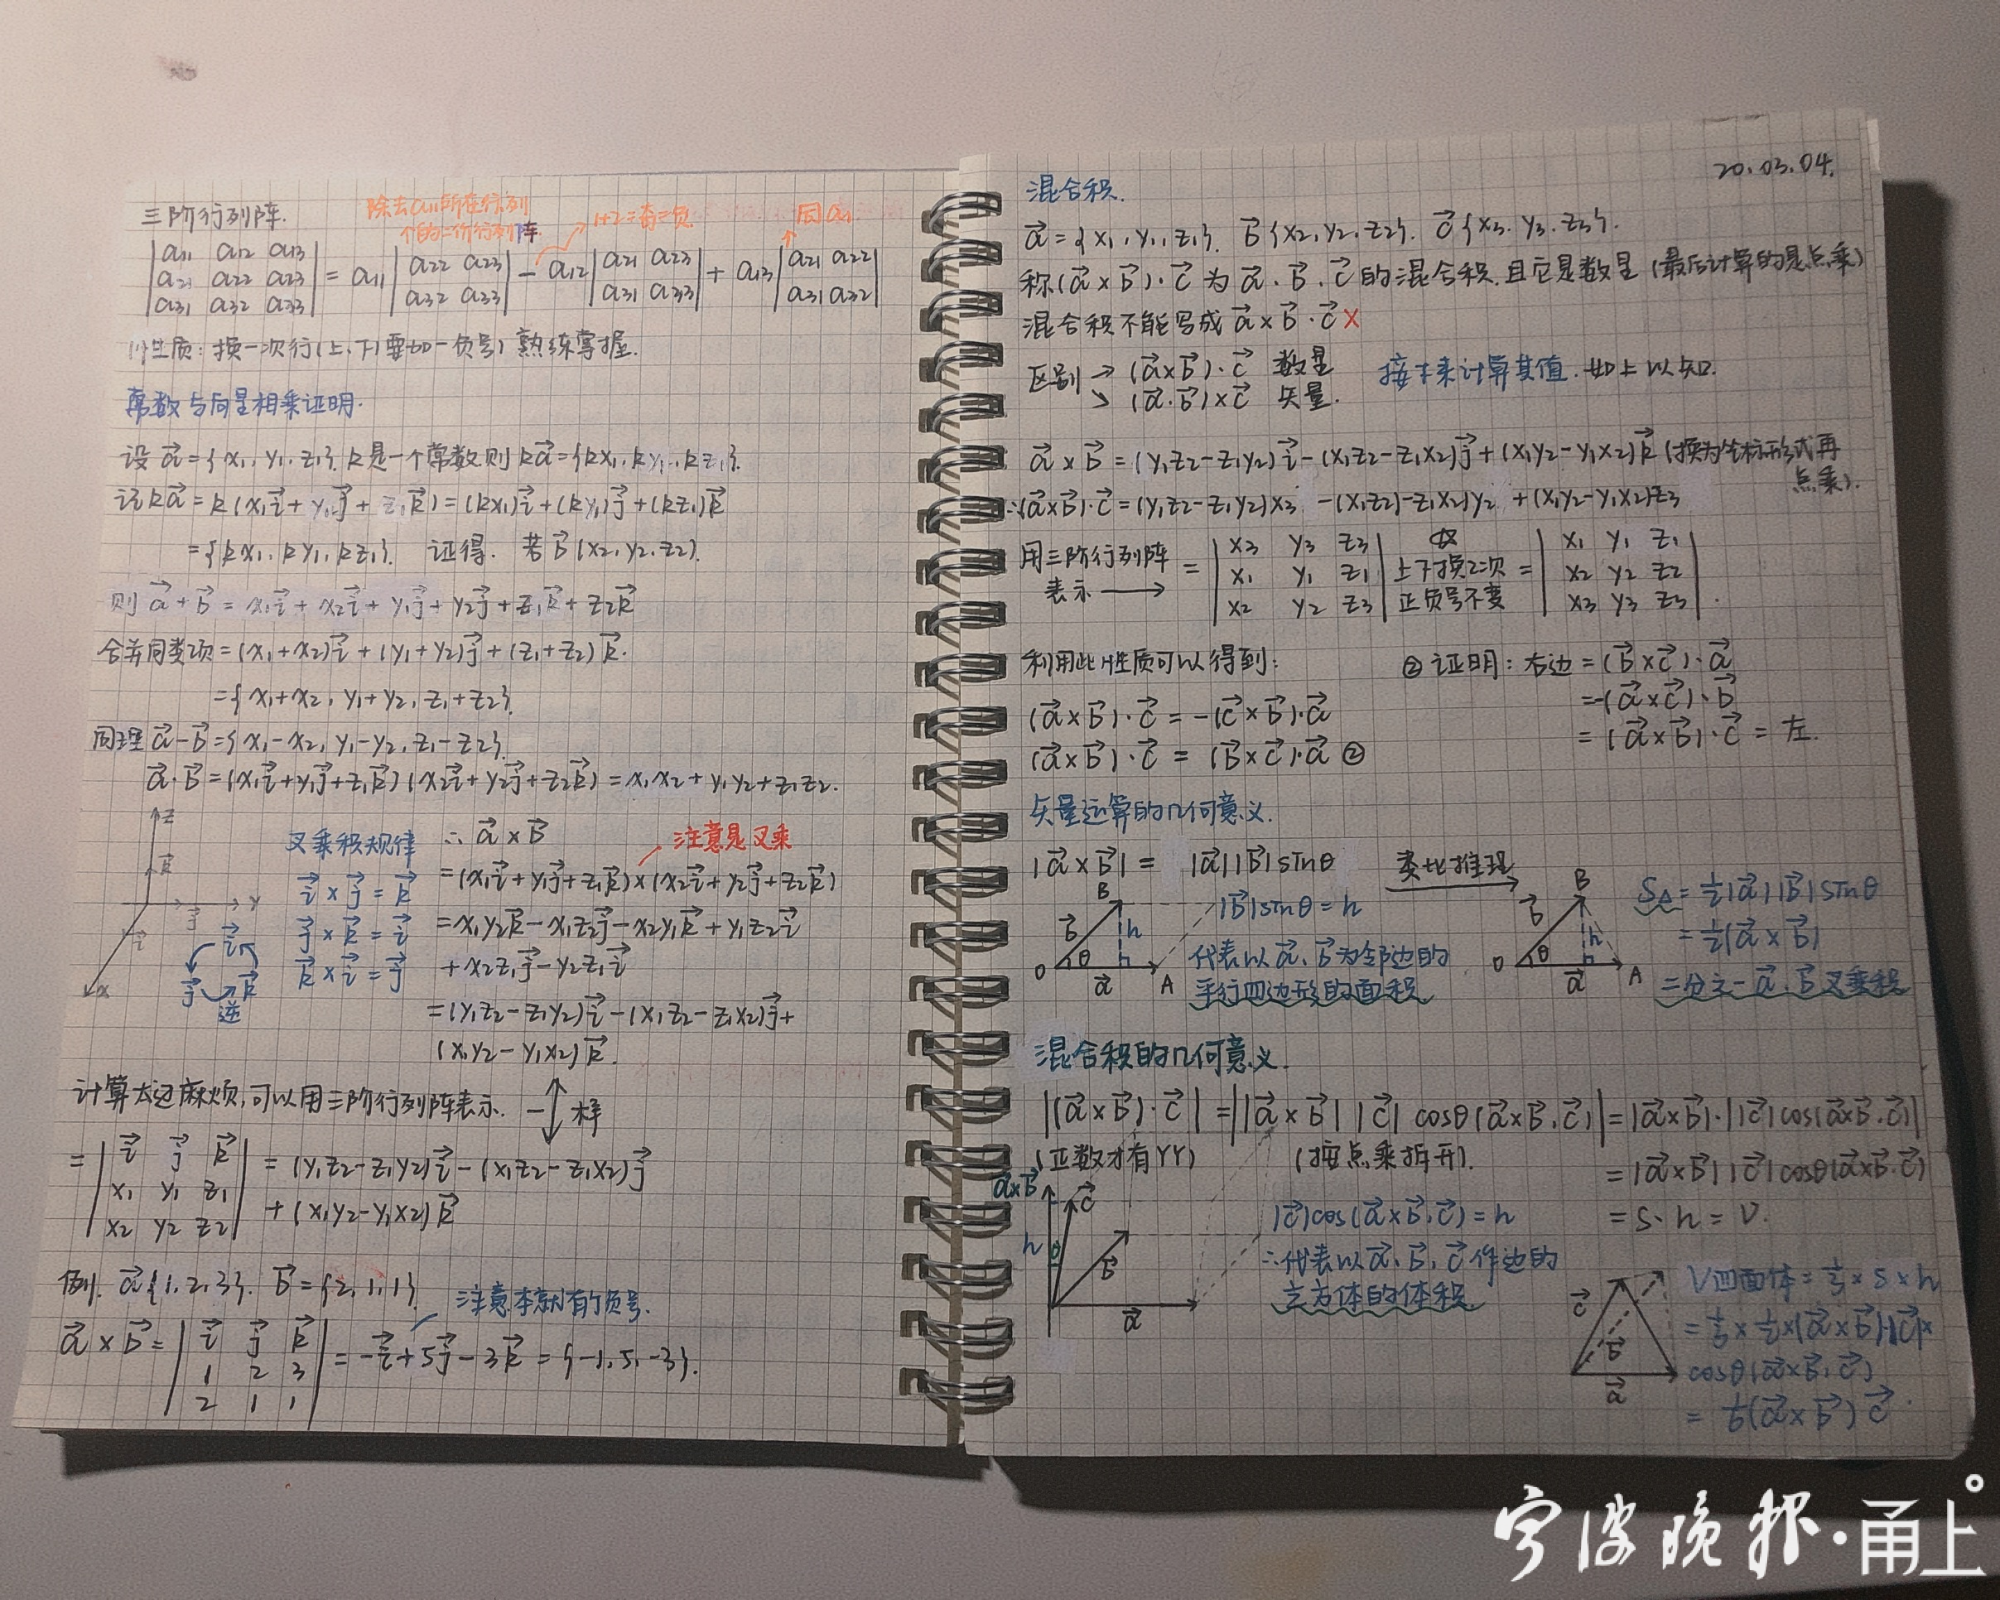 三阶行列阵.
除去a11所在行列
个的二阶行列阵
1+2=奇=负
同a11
| a11 a12 a13 |
| a21 a22 a23 |
| a31 a32 a33 |
= a11 | a22 a23 | − a12 | a21 a23 | + a13 | a21 a22 |
| a32 a33 | | a31 a33 | | a31 a32 |
性质:换一次行(上、下)要加一负号)熟练掌握.
常数与向量相乘证明.
设 a⃗={x₁, y₁, z₁}, k是一个常数则 ka⃗={kx₁, ky₁, kz₁}.
证ka⃗=k(x₁i⃗+y₁j⃗+z₁k⃗)=(kx₁)i⃗+(ky₁)j⃗+(kz₁)k⃗
={kx₁, ky₁, kz₁}. 证得. 若b⃗(x₂, y₂, z₂).
则a⃗+b⃗=x₁i⃗+x₂i⃗+y₁j⃗+y₂j⃗+z₁k⃗+z₂k⃗
合并同类项=(x₁+x₂)i⃗+(y₁+y₂)j⃗+(z₁+z₂)k⃗.
={x₁+x₂, y₁+y₂, z₁+z₂}.
同理a⃗−b⃗={x₁−x₂, y₁−y₂, z₁−z₂}.
a⃗·b⃗=(x₁i⃗+y₁j⃗+z₁k⃗)(x₂i⃗+y₂j⃗+z₂k⃗)=x₁x₂+y₁y₂+z₁z₂.
z
k⃗
y
j⃗
i⃗
x
叉乘积规律
i⃗×j⃗=k⃗
j⃗×k⃗=i⃗
k⃗×i⃗=j⃗
i⃗
j⃗ k⃗
逆
∴ a⃗×b⃗
注意是叉乘
=(x₁i⃗+y₁j⃗+z₁k⃗)×(x₂i⃗+y₂j⃗+z₂k⃗)
=x₁y₂k⃗−x₁z₂j⃗−x₂y₁k⃗+y₁z₂i⃗
+x₂z₁j⃗−y₂z₁i⃗
=(y₁z₂−z₁y₂)i⃗−(x₁z₂−z₁x₂)j⃗+
(x₁y₂−y₁x₂)k⃗.
计算太过麻烦,可以用三阶行列阵表示. 一样
= | i⃗ j⃗ k⃗ | =(y₁z₂−z₁y₂)i⃗−(x₁z₂−z₁x₂)j⃗
| x₁ y₁ z₁ | +(x₁y₂−y₁x₂)k⃗
| x₂ y₂ z₂ |
例. a⃗{1, 2, 3}. b⃗={2, 1, 1}
注意本就有的负号.
a⃗×b⃗= | i⃗ j⃗ k⃗ | =−i⃗+5j⃗−3k⃗={−1, 5, −3}.
| 1 2 3 |
| 2 1 1 |
20.03.04.
混合积.
a⃗={x₁, y₁, z₁}. b⃗{x₂, y₂, z₂}. c⃗{x₃, y₃, z₃}.
称(a⃗×b⃗)·c⃗为a⃗、b⃗、c⃗的混合积.且它是数量(最后计算的是点乘)
混合积不能写成a⃗×b⃗·c⃗ ×
区别→(a⃗×b⃗)·c⃗ 数量 接下来计算其值.如上以知.
↘(a⃗·b⃗)×c⃗ 矢量.
a⃗×b⃗=(y₁z₂−z₁y₂)i⃗−(x₁z₂−z₁x₂)j⃗+(x₁y₂−y₁x₂)k⃗(换为坐标形式再
点乘).
∴(a⃗×b⃗)·c⃗=(y₁z₂−z₁y₂)x₃ −(x₁z₂)−z₁x₂)y₂ +(x₁y₂−y₁x₂)z₃
用三阶行列阵 = | x₃ y₃ z₃ | ☆ | x₁ y₁ z₁ |
表示→ | x₁ y₁ z₁ | 上下换2次 = | x₂ y₂ z₂ |
| x₂ y₂ z₃ | 正负号不变 | x₃ y₃ z₃ |.
利用此性质可以得到:
(a⃗×b⃗)·c⃗=−(c⃗×b⃗)·a⃗
(a⃗×b⃗)·c⃗=(b⃗×c⃗)·a⃗ ②
②证明:右边=(b⃗×c⃗)·a⃗
=−(a⃗×c⃗)·b⃗
=(a⃗×b⃗)·c⃗=左.
矢量运算的几何意义.
|a⃗×b⃗|= |a⃗||b⃗|sinθ 类比推理
B
b⃗ h
O θ a⃗ A
|b⃗|sinθ=h
代表以a⃗、b⃗为邻边的
平行四边形的面积
B
b⃗ h
O θ a⃗ A
S△=½|a⃗||b⃗|sinθ
=½|a⃗×b⃗|
二分之一a⃗、b⃗叉乘积
混合积的几何意义.
|(a⃗×b⃗)·c⃗|=||a⃗×b⃗| |c⃗| cosθ(a⃗×b⃗,c⃗)|=|a⃗×b⃗|·||c⃗|cos(a⃗×b⃗,c⃗)|
(正数才有YY) (按点乘拆开).
=|a⃗×b⃗||c⃗|cosθ(a⃗×b⃗·c⃗)
=S·h=V.
a⃗×b⃗
c⃗
h θ b⃗
a⃗
|c⃗|cos(a⃗×b⃗,c⃗)=h
∴代表以a⃗、b⃗、c⃗作边的
立方体的体积
c⃗
b⃗
a⃗
V四面体=⅓×S×h
=⅓×½×|a⃗×b⃗|·|c⃗|×
cosθ(a⃗×b⃗,c⃗)
=⅙(a⃗×b⃗)c⃗.
宁波晚报·甬上